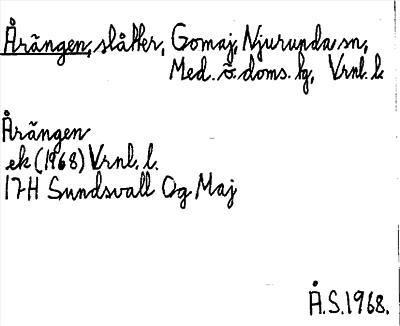 Årängen, slåtter, Gomaj, Njurunda sn,
Med. ö. doms. hg, Vrnl. l.
Årängen
ek (1968) Vrnl. l.
17H Sundsvall Og Maj
Å.S. 1968.